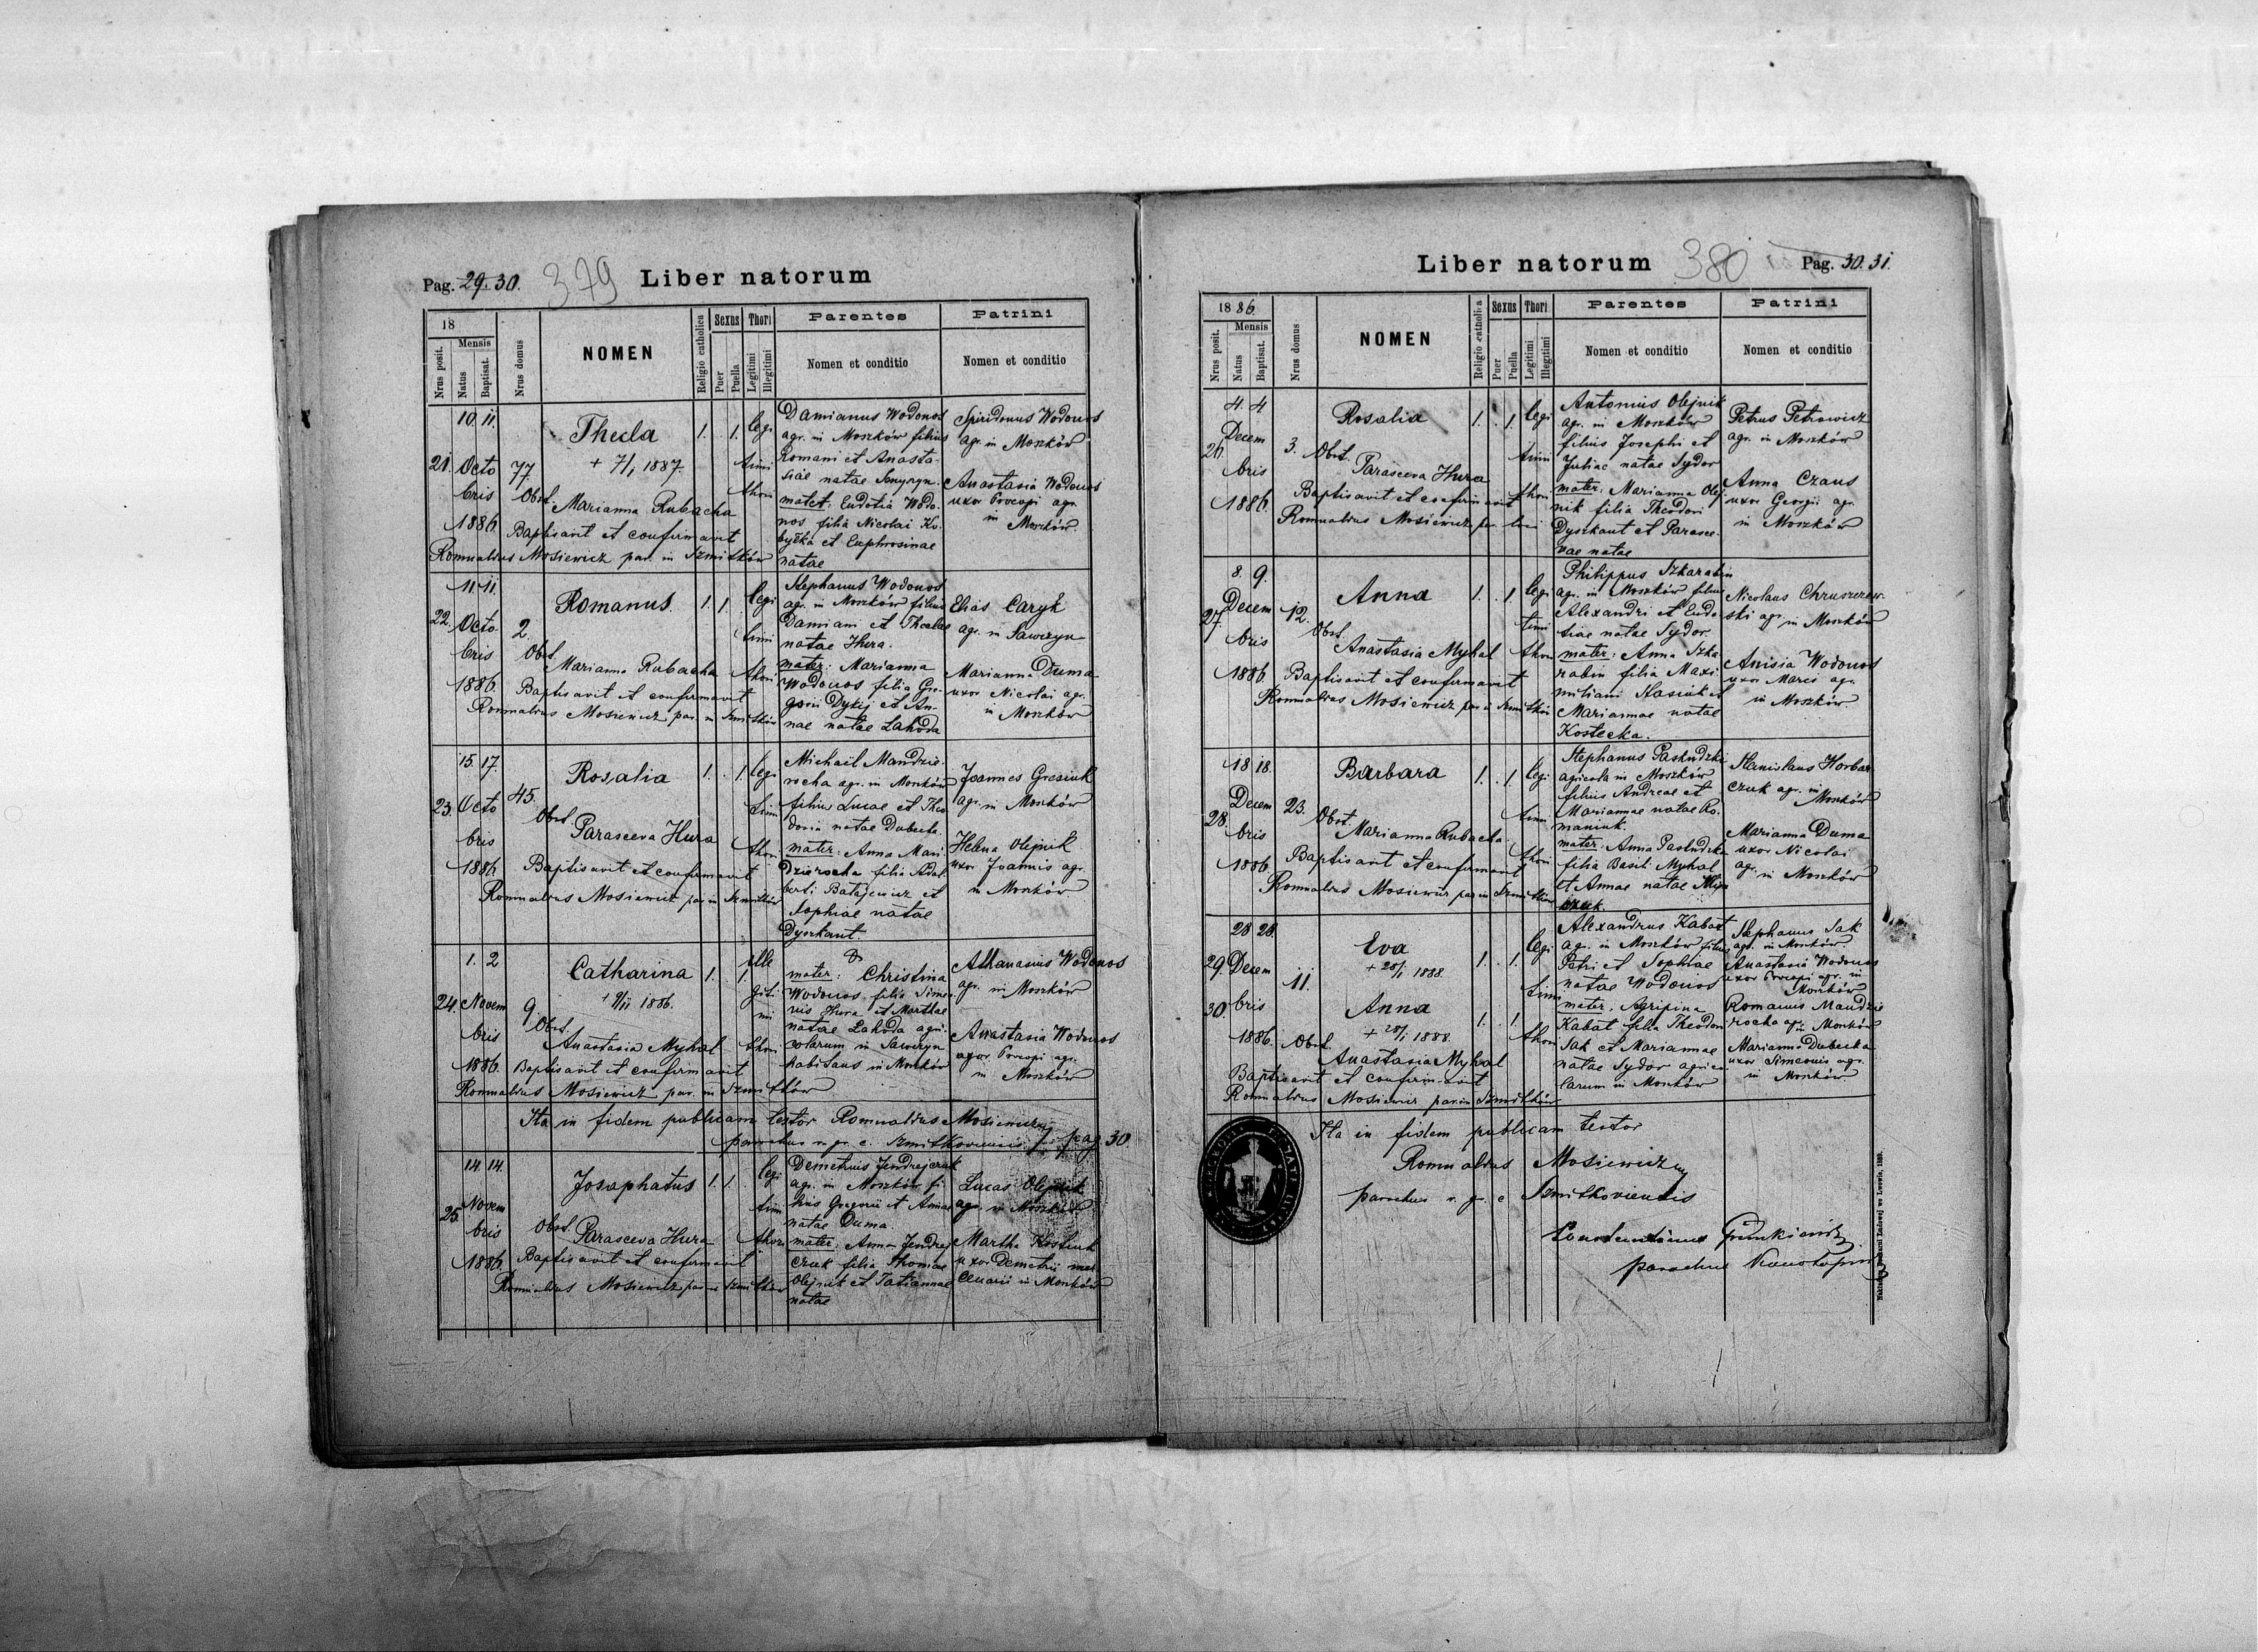 Pag. 29. 30. 379 Liber natorum
18
Nrus posit.
Mensis
Natus
Baptisat.
Nrus domus
NOMEN
Religio catholica
Sexus
Puer
Puella
Thori
Legitimi
Illegitimi
Parentes
Nomen et conditio
Patrini
Nomen et conditio
21.
10. 11.
Octo
bris
1886
77.
Thecla
+ 7/1 1887.
Obst. Marianna Rubacha
Baptisavit et confirmavit
Romualdus Mosiewicz par. in Szmitków
1. . 1.
legi
timi
thori
Damianus Wodonos
agr. in Moszków filius
Romani et Anasta-
siae natae
mater: Eudotia Wodo-
nos filia Nicolai Ko-
byłka et Euphrosinae
natae
Spiridonus Wodonos
agr. in Moszków
Anastasia Wodonos
uxor Procopi agr.
in Moszków
22.
11. 11.
Octo
bris
1886.
2.
Romanus.
Obst.
Marianna Rubacha
Baptisavit et confirmavit
Romualdus Mosiewicz par. in Szmitków
1. 1.
legi
timi
thori
Stephanus Wodonos
agr. in Moszków filius
Damiani et Theclae
natae Hura.
mater: Marianna
Wodonos filia Gre-
gorii Dykij et An-
nae natae Lahoda
Elias Caryk
agr. in Sawczyn
Marianna Duma
uxor Nicolai agr.
in Moszków
23.
15. 17.
Octo
bris
1886
45.
Rosalia
Obst.
Parasceva Hura
Baptisavit et confirmavit
Romualdus Mosiewicz par. in Szmitków
1. . 1.
legi
timi
thori
Michael Mandzie-
rocha agr. in Moszków
filius Lucae et Theo
natae
mater: Anna Man-
dzierocha filia Adal
berti Batijewicz et
Sophiae natae
Dyszkant.
Joannes Gresiuk
agr. in Moszków
Helena Olejnik
uxor Joannis agr.
in Moszków
24.
1. 2
Novem
bris
1886.
9
Catharina
+ 9/11 1886.
Obst.
Anastasia Myhal
Baptisavit et confirmavit
Romualdus Mosiewicz par. in Szmitków
1. 1.
ille
giti
mi
thori
mater: Christina
Wodonos filia Simeo-
nis Hura et Marthae
natae Lahoda agri-
colarum in Sawczyn
habitans in Moszków
Athanasius Wodonos
agr. in Moszków
Anastasia Wodonos
uxor Procopi agr.
in Moszków
Ita in fidem publicam testor Romualdus Mosiewicz
parochus r. gr. c. Szmitkoviensis pag 30
25.
14. 14.
Novem
bris
1886.
Josaphatus
Obst. Parasceva Hura
Baptisavit et confirmavit
Romualdus Mosiewicz par. in Szmitków
1. 1.
legi
timi
thori
Demetrius Jendrejczuk
agr. in Moszków fi-
lius Gregorii et Annae
natae Duma.
mater: Anna Jendrej
czuk filia Thomae
Olejnik et Tatiannae
natae
Lucas Olejnik
agr. in Moszków
Martha Kostiuk
uxor Demetrii mer
cenarii in Moszków
Liber natorum 380 Pag. 30. 31.
1886.
Nrus posit.
Mensis
Natus
Baptisat.
Nrus domus
NOMEN
Religio catholica
Sexus
Puer
Puella
Thori
Legitimi
Illegitimi
Parentes
Nomen et conditio
Patrini
Nomen et conditio
26.
4. 4
Decem
bris
1886.
3.
Rosalia
Obst.
Parasceva Hura
Baptisavit et confirmavit
Romualdus Mosiewicz par.
1. . 1.
legi
timi
thori
Antonius Olejnik
agr. in Moszków
filius Josephi et
Juliae natae Sydor
mater: Marianna Olej
nik filia Theodori
Dyszkant et Parasce-
vae natae
Petrus Petrowicz
agr. in Moszków
Anna Czaus
uxor Georgii agr.
in Moszków
27.
8. 9.
Decem
bris
1886.
12.
Anna
Obst.
Anastasia Myhal
Baptisavit et confirmavit
Romualdus Mosiewicz par. in Szmitków
1. . 1.
legi
timi
thori
Philippus Szkarabin
agr. in Moszków filius
Alexandri et Eudo-
tiae natae Sydor.
mater: Anna Szka
rabin filia Maxi
miliani Stasiuk et
Mariannae natae
Kostecka.
Nicolaus Chruszczew-
ski agr. in Moszków
Anisia Wodonos
uxor Marci agr.
in Moszków
28.
18 18.
Decem
bris
1886.
23.
Barbara
Obst.
Marianna Rubacha
Baptisavit et confirmavit
Romualdus Mosiewicz par. in Szmitków
1. . 1.
legi
timi
thori
Stephanus Paskudzki
agricola in Moszków
filius Andreae et
Mariannae natae Ro-
maniuk.
mater: Anna Paskudzka
filia Basili Myhal
et Annae natae
Stanislaus Horbar
czuk agr. in
Moszków
Marianna Duma
uxor Nicolai
agr. in Moszków
29.
30.
28 28.
Decem
bris
1886.
11.
Eva
+ 28/1 1888.
Anna
+ 28/1 1888.
Obst.
Anastasia Myhal
Baptisavit et confirmavit
Romualdus Mosiewicz par. in Szmitków
1. . 1.
1. . 1.
legi
timi
thori
Alexandrus Kabat
agr. in Moszków filius
Petri et Sophiae
natae Wodonos
mater: Agripina
Kabat filia Theodori
Sak et Mariannae
natae Sydor agrico
larum in Moszków
Stephanus Sak
agr. in Moszków.
Anastasia Wodonos
uxor Procopi agr. in
Moszków
Romanus Mandzie
rocha agr. in Moszków
Marianna Dubecka
uxor Simeonis agr.
in Moszków
Ita in fidem publicam testor
Romualdus Mosiewicz
parochus r. gr. c Szmitkoviensis
parochus
Nakładem Drukarni Ludowej we Lwowie, 1889.